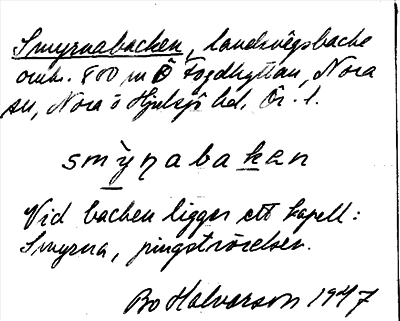 Smyrnabacken, landsvägsbacke
omkr. 800 m Ö Fogdhyttan, Nora
sn, Nora o Hjulsjö hd, Ör. l.
smỳṇabakan
Vid backen ligger ett kapell:
Smyrna, pingströrelsen.
Bo Halvarson 1947